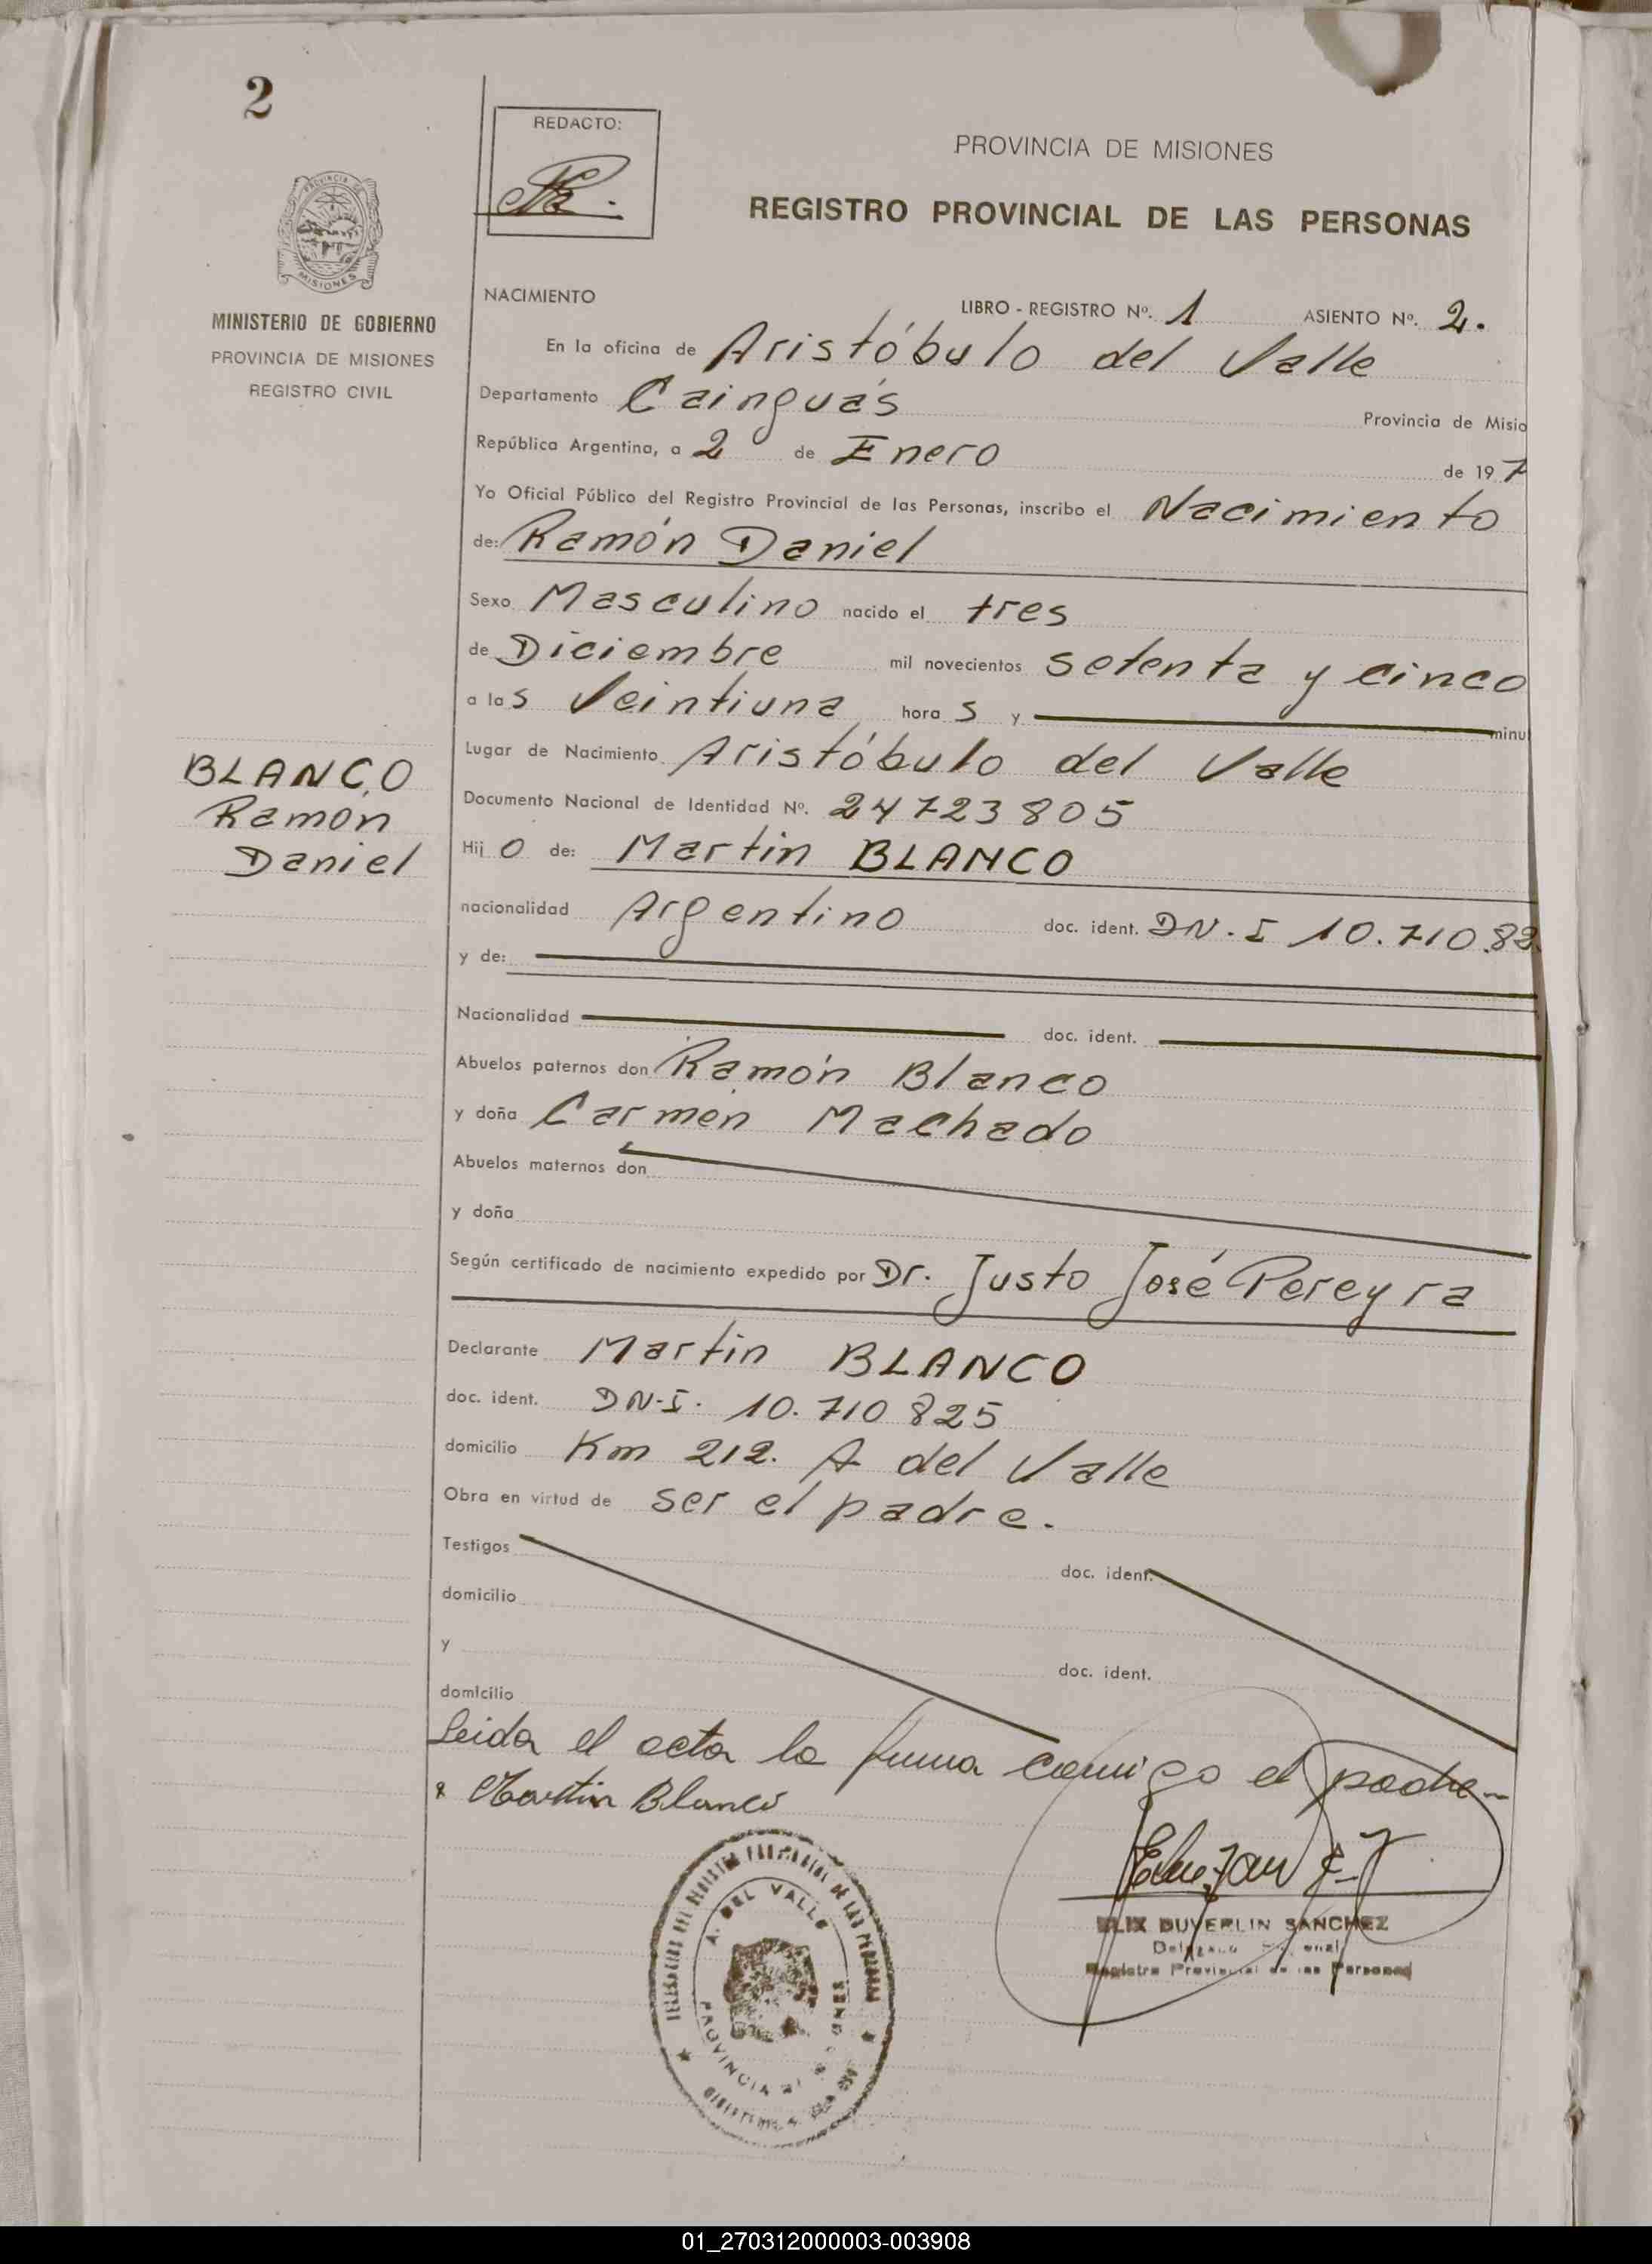 2
REDACTO:
PROVINCIA DE MISIONES
REGISTRO PROVINCIAL DE LAS PERSONAS
PROVINCIA DE
MISIONES
MINISTERIO DE GOBIERNO
PROVINCIA DE MISIONES
REGISTRO CIVIL
NACIMIENTO
LIBRO - REGISTRO Nº. 1 ASIENTO Nº. 2.
En la oficina de Aristóbulo del Valle
Departamento Cainguás Provincia de Misio
República Argentina, a 2 de Enero de 197
Yo Oficial Público del Registro Provincial de las Personas, inscribo el Nacimiento
de: Ramón Daniel
Sexo Masculino nacido el tres
de Diciembre mil novecientos setenta y cinco
a las Veintiuna horas y minu
Lugar de Nacimiento Aristóbulo del Valle
BLANCO
Ramón
Daniel
Documento Nacional de Identidad Nº. 24723805
Hijo de: Martin BLANCO
nacionalidad Argentino doc. ident. DN.I 10.710.82
y de:
Nacionalidad doc. ident.
Abuelos paternos don Ramón Blanco
y doña Carmen Machado
Abuelos maternos don
y doña
Según certificado de nacimiento expedido por Dr. Justo José Pereyra
Declarante Martin BLANCO
doc. ident. DN.I. 10.710 825
domicilio Km 212. A del Valle
Obra en virtud de ser el padre.
Testigos doc. ident.
domicilio
y doc. ident.
domicilio
Leida el acta la firma conmigo el padre
Martin Blanco
DUVERLIN SANCHEZ
Registro Provincial de las Personas
A. DEL VALLE
PROVINCIA
01_270312000003-003908